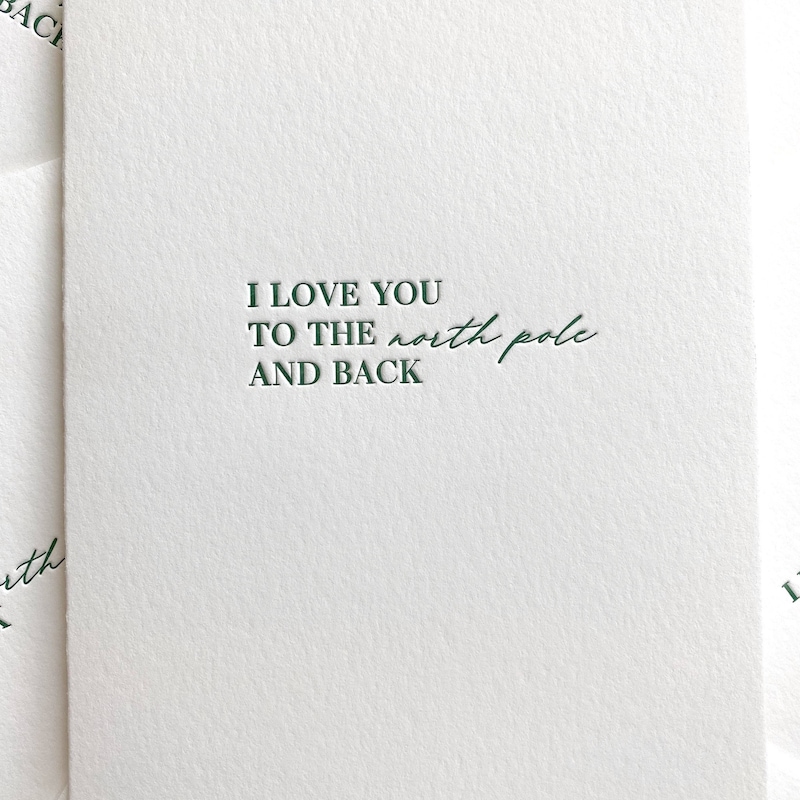 BACK
I LOVE YOU
TO THE north pole
AND BACK